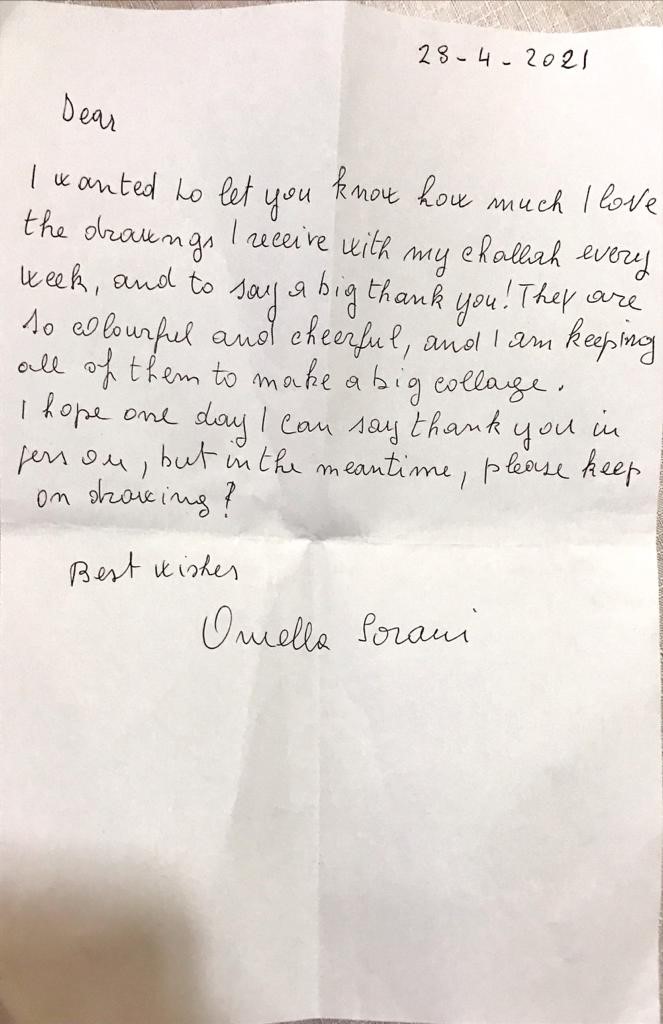 28-4-2021
Dear
I wanted to let you know how much I love
the drawings I receive with my challah every
week, and to say a big thank you! They are
so colourful and cheerful, and I am keeping
all of them to make a big collage.
I hope one day I can say thank you in
person, but in the meantime, please keep
on drawing!
Best wishes
Ornella Sorani